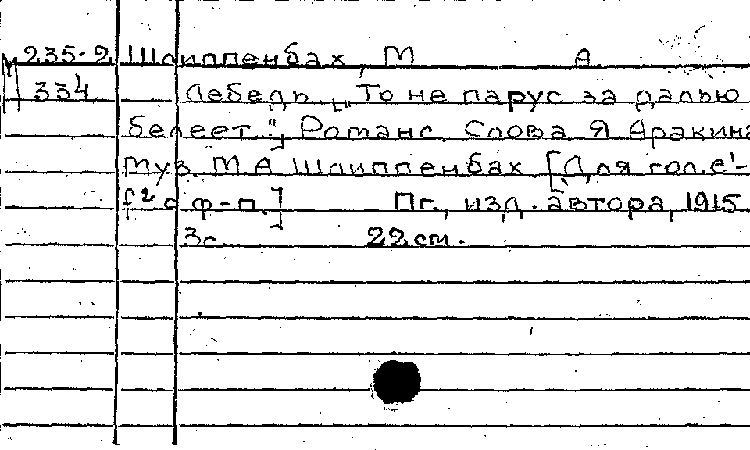 235-2 Шлиппенбах, М А.
М 334 Лебедь. „То не парус за далью
белеет". Романс. Слова Я Аракина
муз. М А Шлиппенбах [Для гол. e'-
f² с ф-п.] Пг., изд. автора, 1915
3с. 22см.